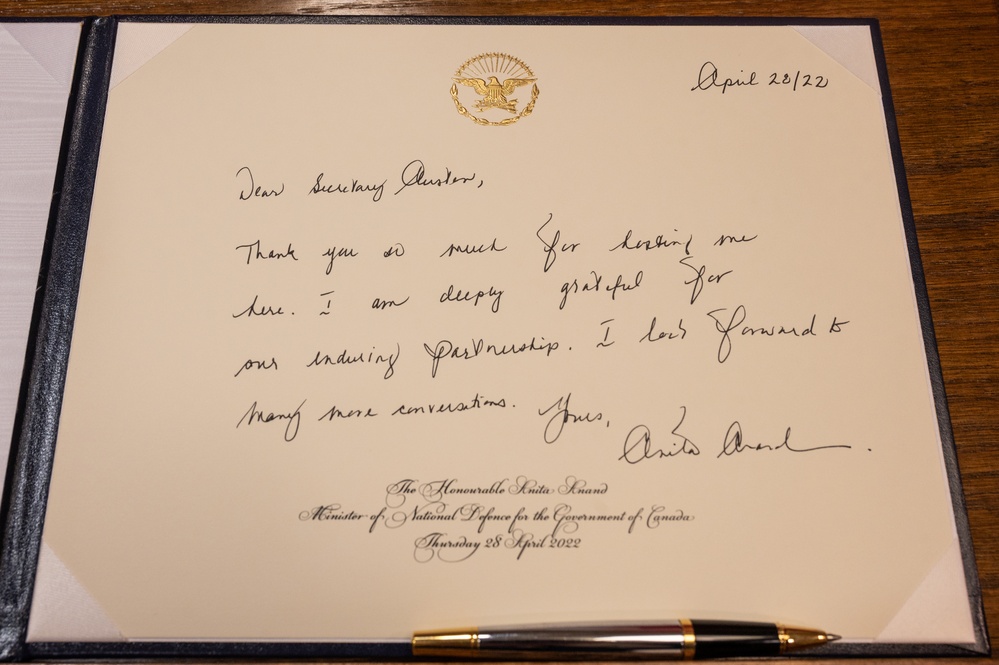 April 28/22
Dear Secretary Austin,
Thank you so much for hosting me
here. I am deeply grateful for
our enduring partnership. I look forward to
many more conversations. Yours,
Anita Anand.
The Honourable Anita Anand
Minister of National Defence for the Government of Canada
Thursday 28 April 2022